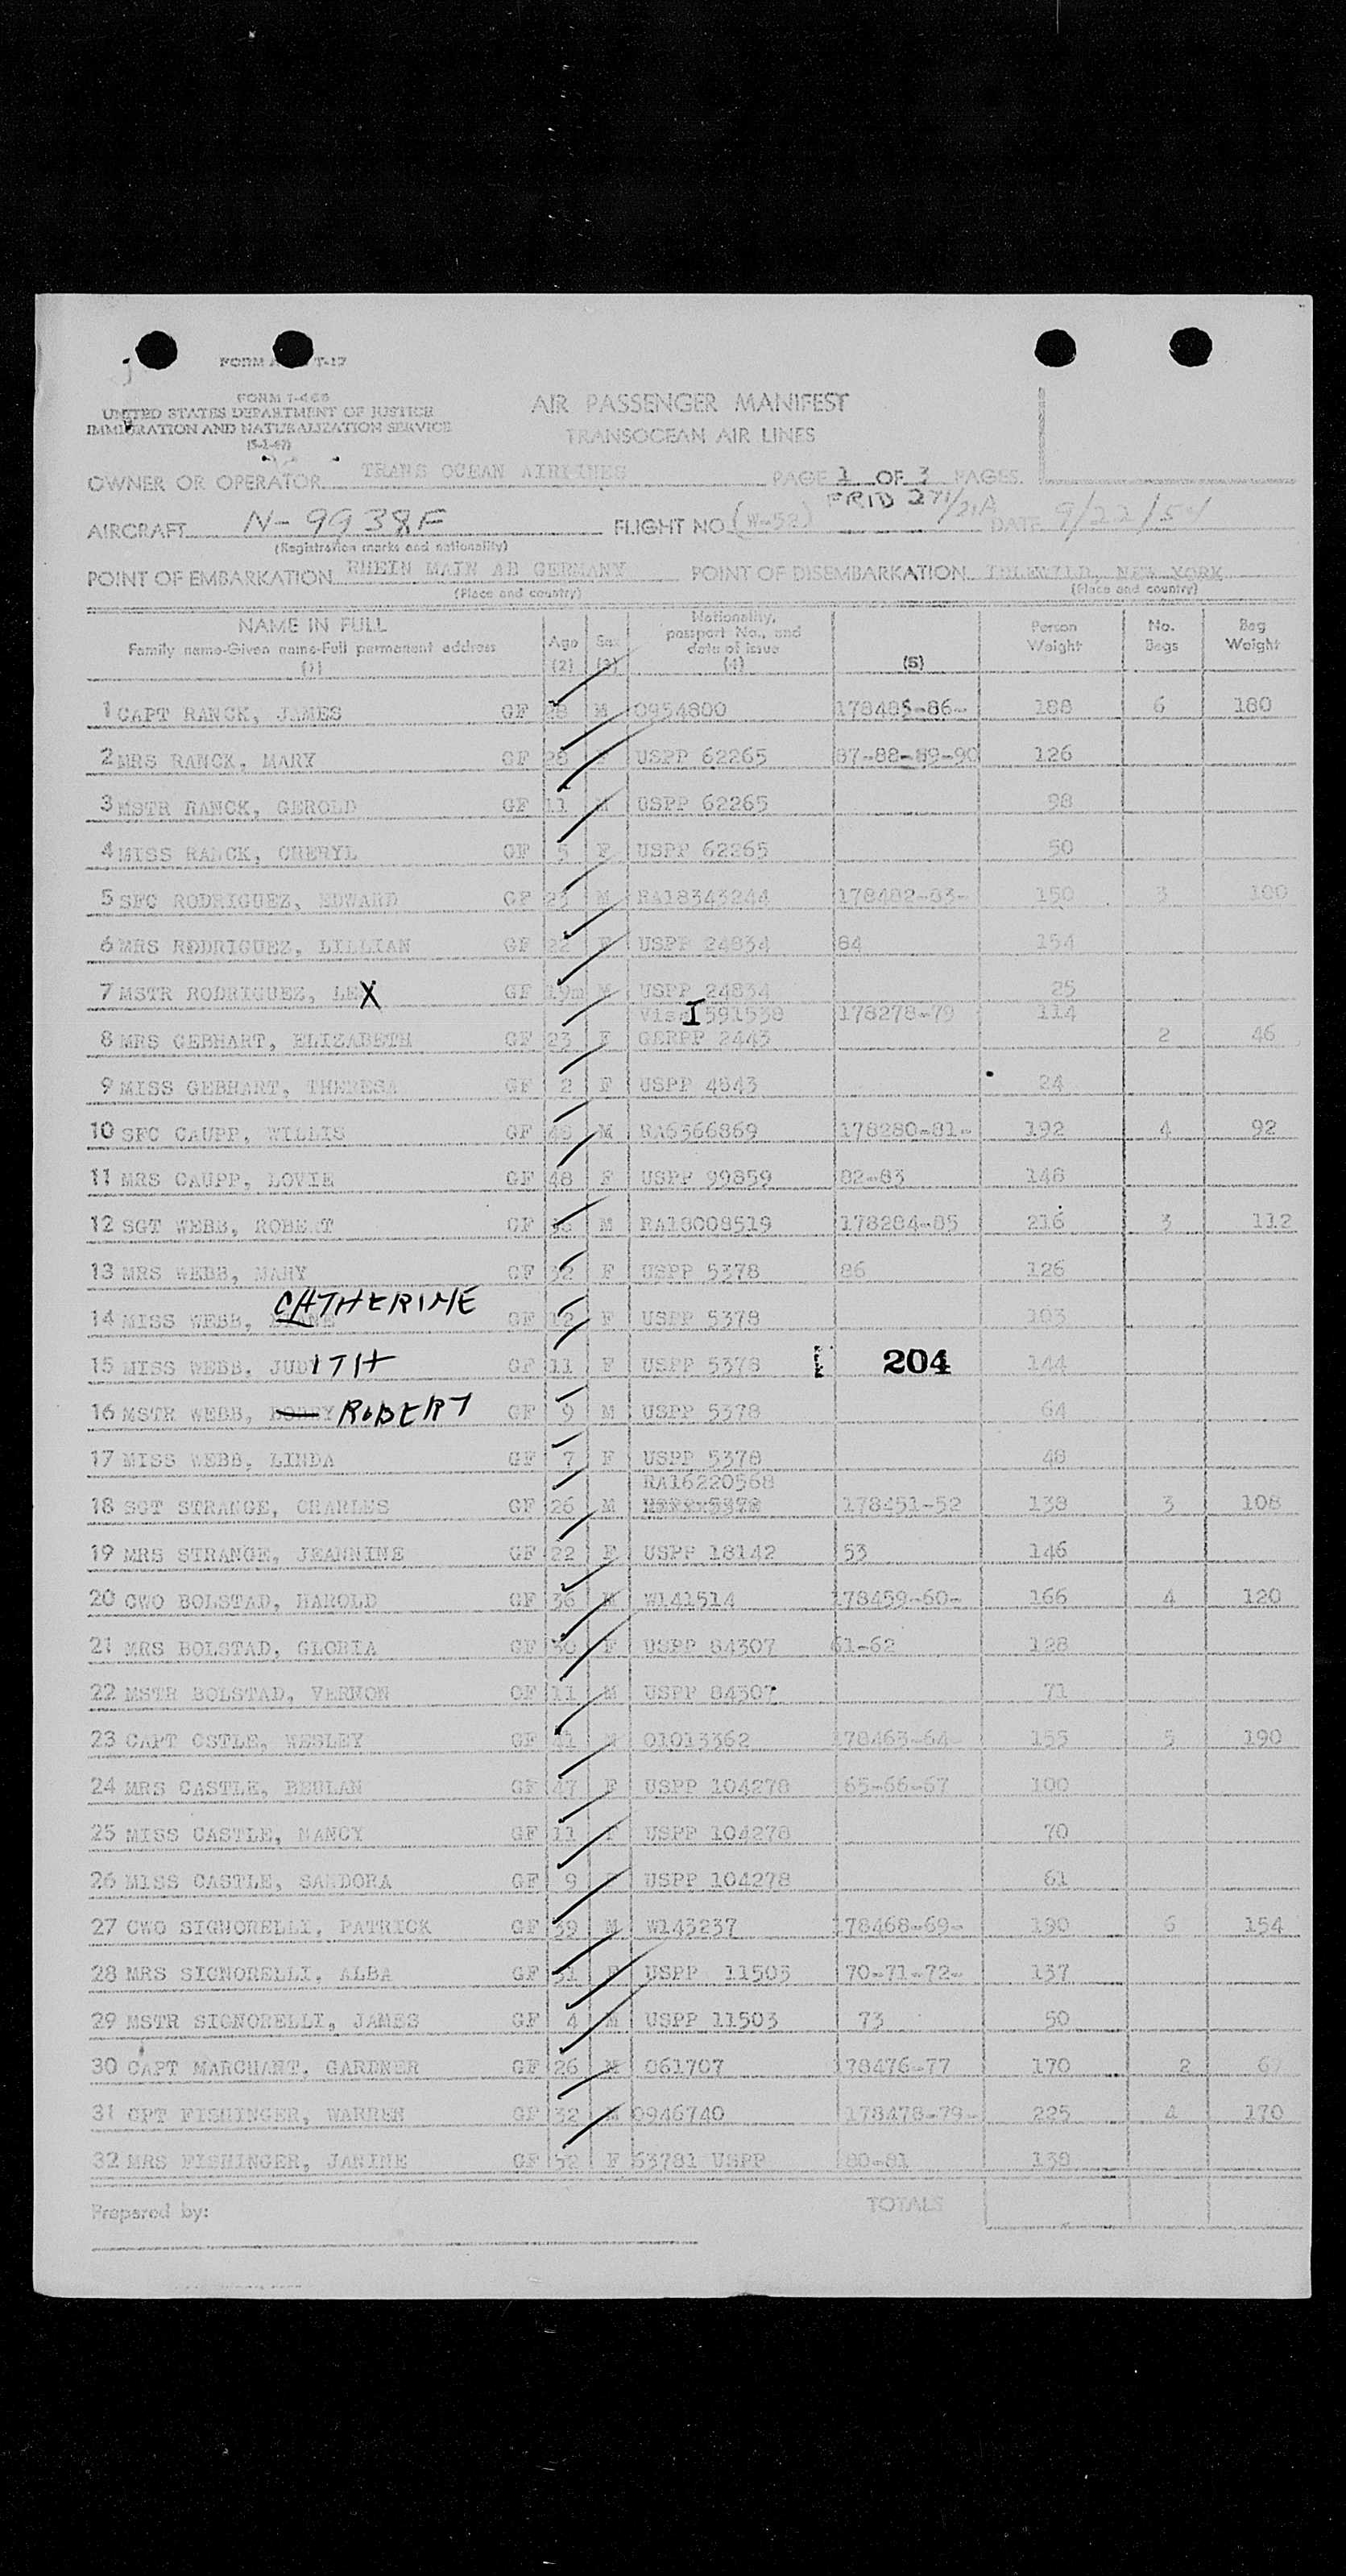 FORM T-17
FORM I-466
UNITED STATES DEPARTMENT OF JUSTICE
IMMIGRATION AND NATURALIZATION SERVICE
(5-1-47)
AIR PASSENGER MANIFEST
TRANSOCEAN AIR LINES
OWNER OR OPERATOR TRANS OCEAN AIRLINES PAGE 1 OF 3 PAGES
AIRCRAFT N-9938F FLIGHT NO. (W-52) FRID 271/21A DATE 9/22/54
(Registration marks and nationality)
POINT OF EMBARKATION RHEIN MAIN AB GERMANY POINT OF DISEMBARKATION IDLEWILD, NEW YORK
(Place and country) (Place and country)
NAME IN FULL Family name-Given name-Full permanent address (1) Age (2) Sex (3) Nationality, passport No., and date of issue (4) (5) Person Weight No. Bags Bag Weight
1 CAPT RANCK, JAMES GF 28 M O954800 178485-86- 188 6 180
2 MRS RANCK, MARY GF 28 F USPP 62265 87-88-89-90 126
3 MSTR RANCK, GEROLD GF 11 M USPP 62265 98
4 MISS RANCK, CHERYL GF 5 F USPP 62265 50
5 SFC RODRIGUEZ, EDWARD GF 23 M RA18343244 178482-83- 150 3 180
6 MRS RODRIGUEZ, LILLIAN GF 22 F USPP 24834 84 154
7 MSTR RODRIGUEZ, LEX GF 19m M USPP 24834 25
Visa I 591538 178278-79 114
8 MRS GEBHART, ELIZABETH GF 23 F GERPP 2443 2 46
9 MISS GEBHART, THERESA GF 2 F USPP 4843 24
10 SFC CAUPP, WILLIS GF 48 M RA6366869 178280-81- 192 4 92
11 MRS CAUPP, LOVIE GF 48 F USPP 99859 82-83 148
12 SGT WEBB, ROBERT GF M RA18008519 178284-85 216 3 112
13 MRS WEBB, MARY GF 32 F USPP 5378 86 126
CATHERINE
14 MISS WEBB, GF 12 F USPP 5378 103
15 MISS WEBB, JUDITH GF 11 F USPP 5378 204 144
16 MSTR WEBB, BOBBY ROBERT GF 9 M USPP 5378 64
17 MISS WEBB, LINDA GF 7 F USPP 5378 48
RA16220568
18 SGT STRANGE, CHARLES GF 26 M 178451-52 138 3 108
19 MRS STRANGE, JEANNINE GF 22 F USPP 18142 53 146
20 CWO BOLSTAD, HAROLD GF 36 M W141514 178459-60- 166 4 120
21 MRS BOLSTAD, GLORIA GF 30 F USPP 84307 61-62 128
22 MSTR BOLSTAD, VERNON GF 11 M USPP 84307 71
23 CAPT CSTLE, WESLEY GF 41 M O1013362 178463-64- 155 5 190
24 MRS CASTLE, BEULAN GF 47 F USPP 104278 65-66-67 100
25 MISS CASTLE, NANCY GF 11 F USPP 104278 70
26 MISS CASTLE, SANDORA GF 9 F USPP 104278 61
27 CWO SIGNORELLI, PATRICK GF 39 M W143237 178468-69- 190 6 154
28 MRS SIGNORELLI, ALBA GF 31 F USPP 11503 70-71-72- 137
29 MSTR SIGNORELLI, JAMES GF 4 M USPP 11503 73 50
30 CAPT MARCHANT, GARDNER GF 26 M O61707 178476-77 170 2 67
31 CPT FISHINGER, WARREN GF 32 M O946740 178478-79- 225 4 170
32 MRS FISHINGER, JANINE GF 32 F 63781 USPP 80-81 139
Prepared by: TOTALS